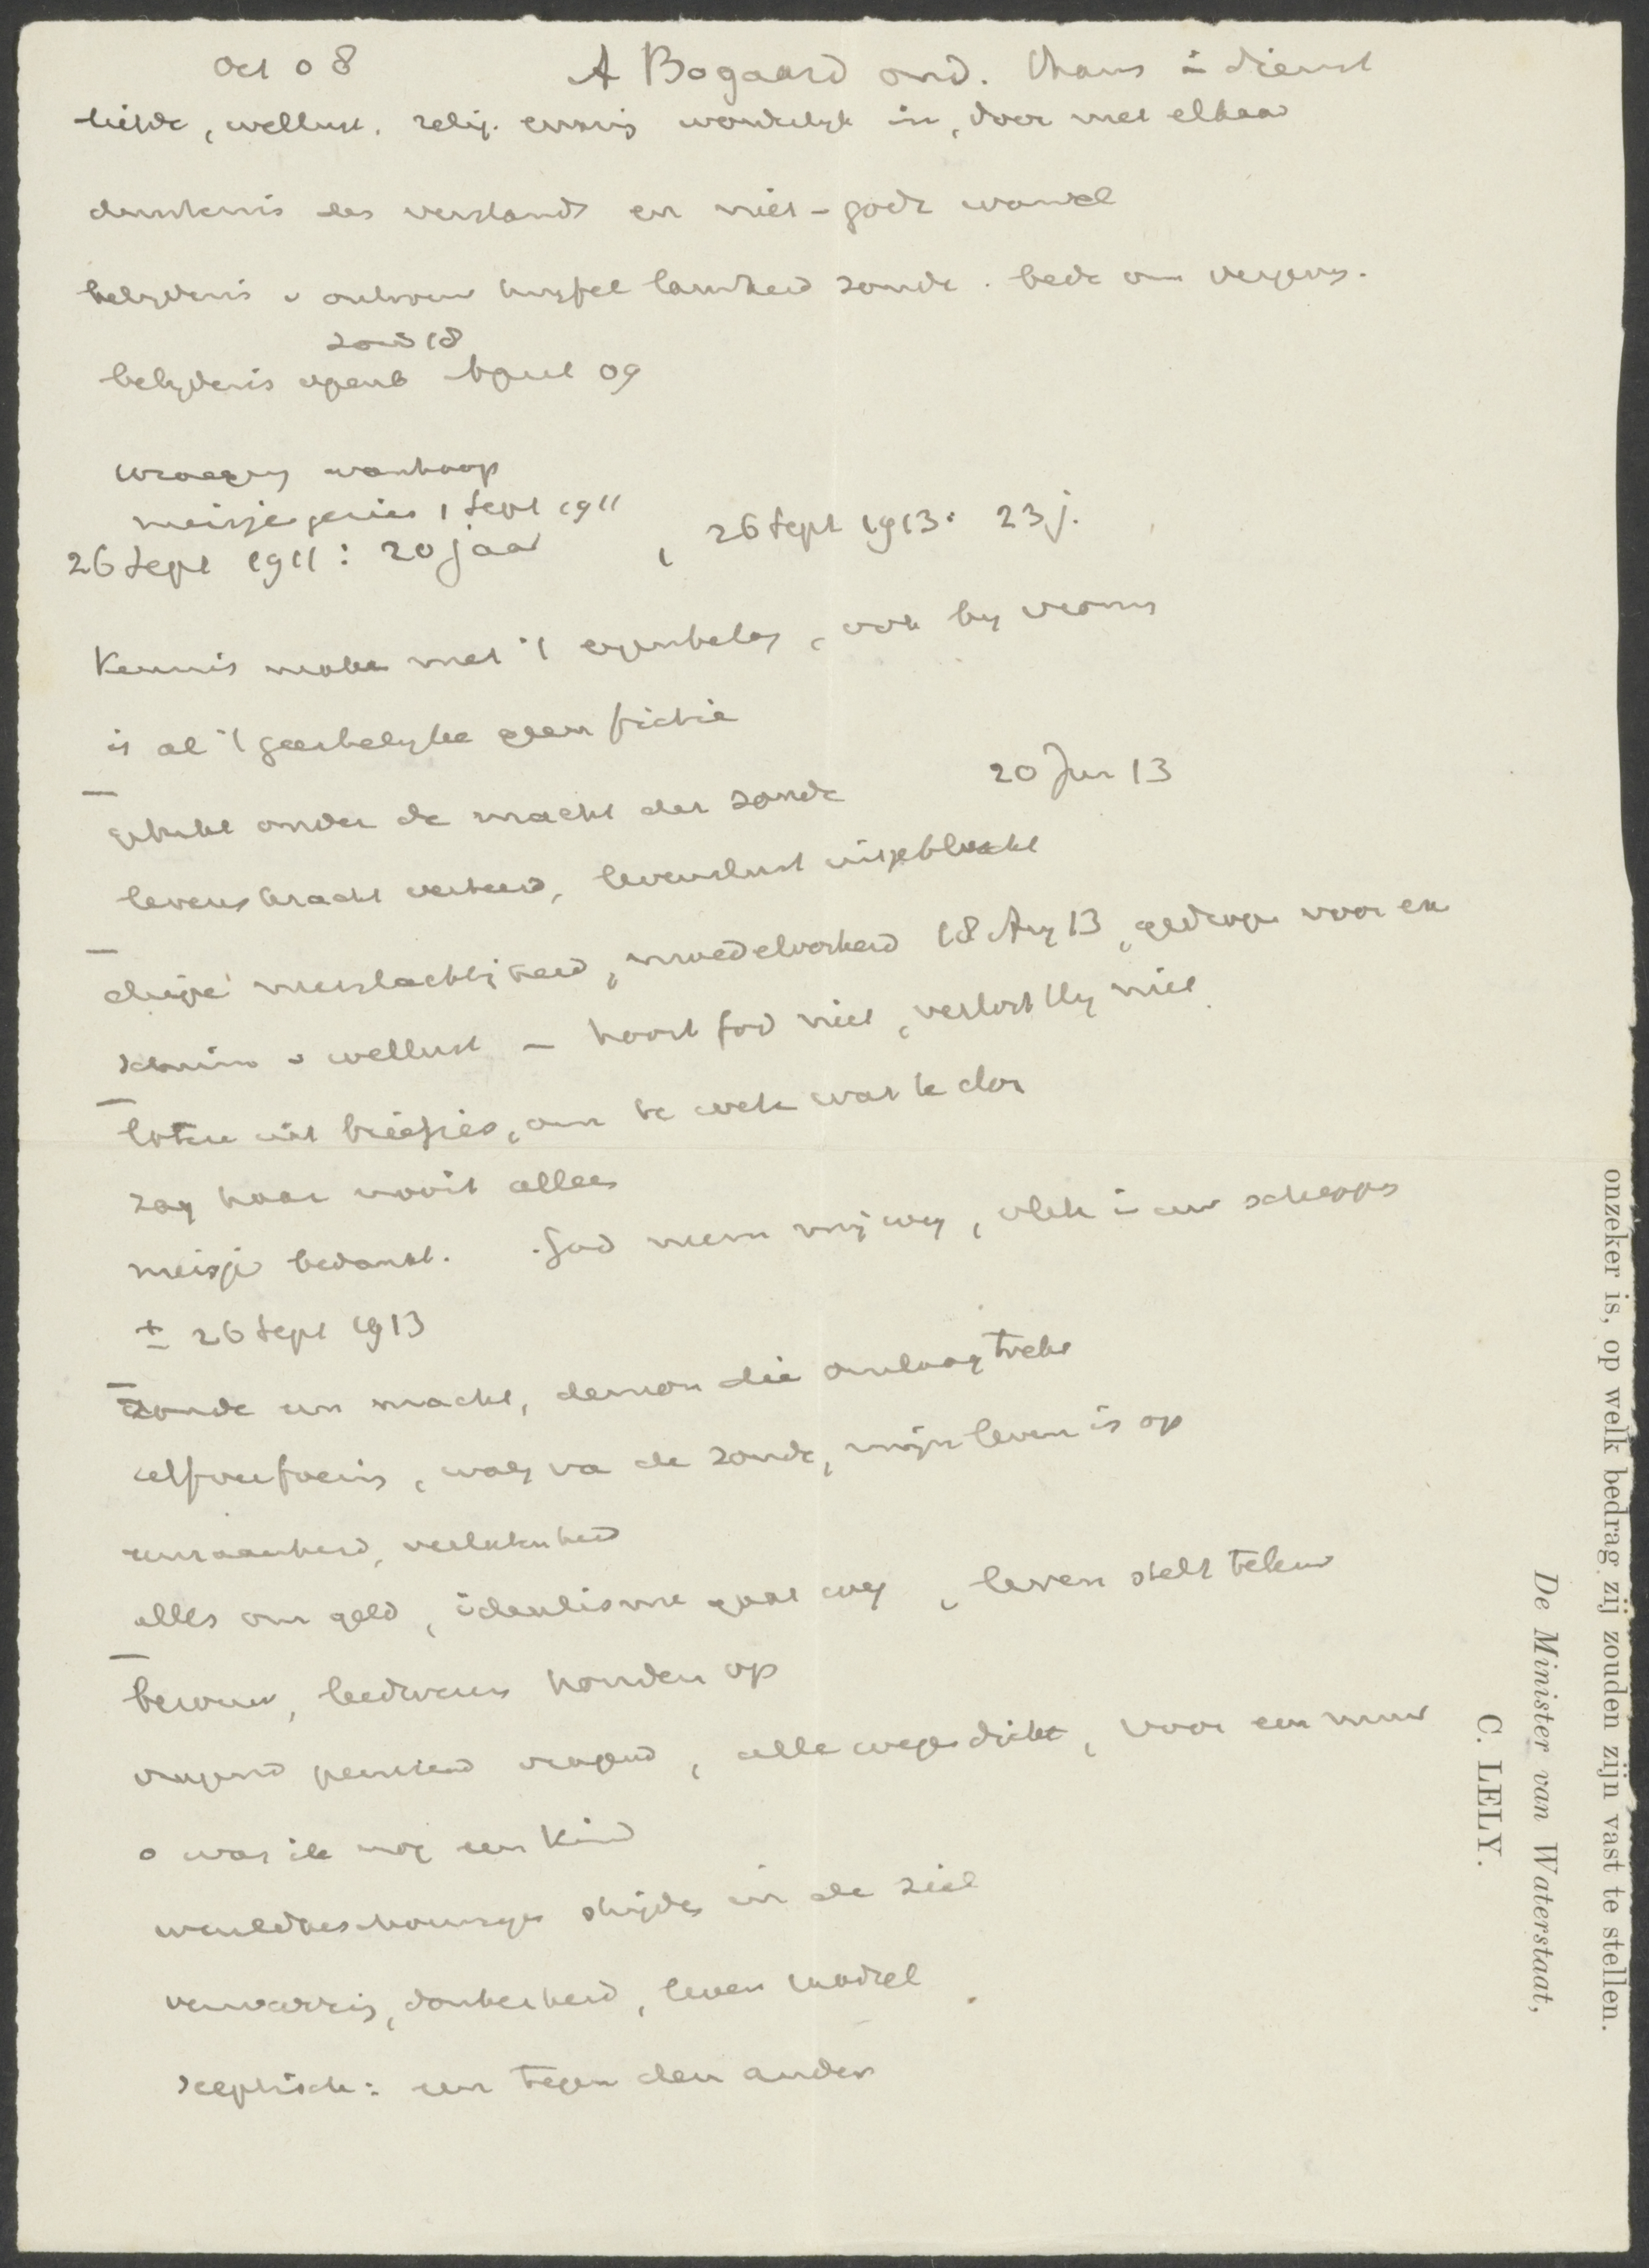 Oct 08 A Bogaard ond. thans in dienst
liefde, wellust, relig. ernstig wonderlijk in, door met elkaar
duisternis des verstands en niet-gods wandel
belijdenis v ontrouw twijfel lauwheid zonde. bede om vergevg.
zond 18
belijdenis openb April 09
wroeging wanhoop
meisje gezien 1 Sept 1911
26 Sept 1911: 20 jaar, 26 Sept 1913: 23 j.
Kennis make met 't eigenbelag, ook bij vrooms
is al 't geestelijke geen fictie
gebukt onder de macht der zonde 20 Jun 13
levenskracht verteerd, levenslust uitgebluscht
diepe neerslachtigheid, moedeloosheid 18 Aug 13, gedroge voor en
schuim v wellust – hoort God niet, verlost Hij niet
loten uit briefjes, om te weten wat te doen
zag haar nooit alleen
meisje bedankt. God neem mij weg, vlek in uw schepping
± 26 Sept 1913
zonde een macht, demon die omlaag trekt
zelfverfoeiing, walg va de zonde, mijn leven is op
eenzaamheid, verlatenheid
alles om geld, idealisme gaat weg, leven stelt teleur
berouw, leedwezen houden op
vragend peinzend vragend, alle wegen dicht, voor een muur
o was ik nog een Kind
wereldbeschouwinge strijden in de ziel
verwarring, donkerheid, leven raadsel
sceptisch: een tegen den ander
onzeker is, op welk bedrag zij zouden zijn vast te stellen.
De Minister van Waterstaat,
C. LELY.